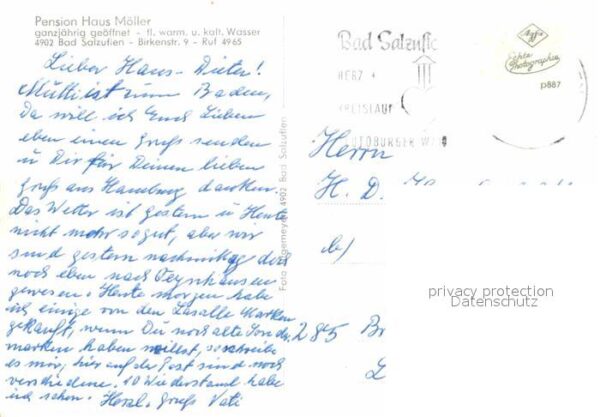 Pension Haus Möller
ganzjährig geöffnet - fl. warm. u. kalt. Wasser
4902 Bad Salzuflen - Birkenstr. 9 - Ruf 4965
Lieber Hans-Dieter!
Mutti ist zum Baden,
Da will ich Euch Lieben
eben einen Gruß senden
u Dir für Deinen lieben
Gruß aus Hamburg danken.
Das Wetter ist gestern u Heute
nicht mehr so gut, aber wir
sind gestern nachmittag doch
noch eben nach Oeynhausen
gewesen. Heute morgen habe
ich einige von den Lasalle Marken
gekauft, wenn Du noch alte Sonder
marken haben willst, so schreibe
es mir, hier auf der Post sind noch
verschiedene. 10 Wiederstand habe
ich schon. Herzl. Gruß Vati
Foto 4902 Bad Salzuflen
Bad Salzufle
HERZ +
KREISLAUF
TEUTOBURGER WALD
Agfa
Echte
Photographie
p887
Herrn
H. D.
285 Br
privacy protection
Datenschutz